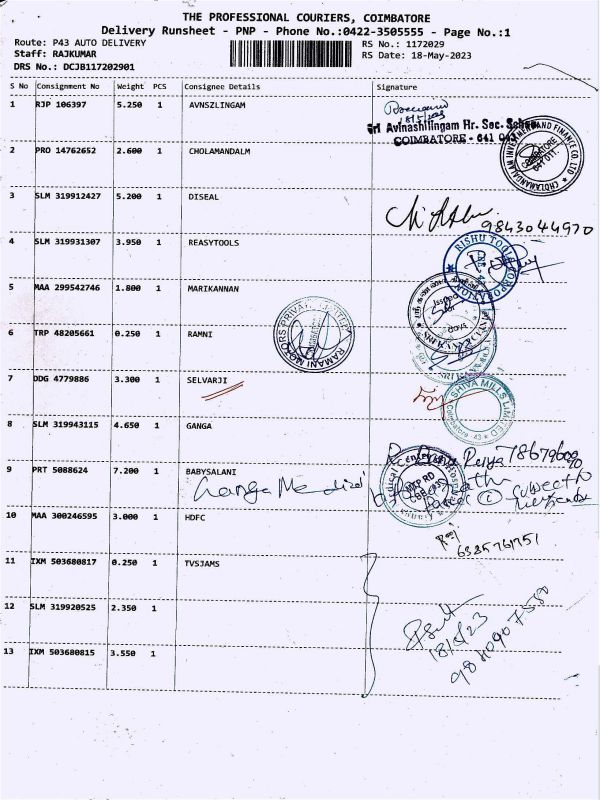 THE PROFESSIONAL COURIERS, COIMBATORE
Delivery Runsheet - PNP - Phone No.:0422-3505555 - Page No.:1
Route: P43 AUTO DELIVERY
Staff: RAJKUMAR
DRS No.: DCJB117202901
RS No.: 1172029
RS Date: 18-May-2023
S No Consignment No Weight PCS Consignee Details Signature
1 RJP 106397 5.250 1 AVNSZLINGAM
18/5/23
Sri Avinashilingam Hr. Sec. School
COIMBATORE - 641 043
2 PRO 14762652 2.600 1 CHOLAMANDALM
CHOLAMANDALAM INVESTMENT AND FINANCE CO. LTD
COIMBATORE
641 011.
3 SLM 319912427 5.200 1 DISEAL
9843044970
4 SLM 319931307 3.950 1 REASYTOOLS
RISHU TOOLS CORPORATION
5 MAA 299542746 1.800 1 MARIKANNAN
6 TRP 48205661 0.250 1 RAMNI
RAMANI MOTORS PRIVATE LIMITED
7 DDG 4779886 3.300 1 SELVARJI
SHIVA MILLS LIMITED
Coimbatore - 43
8 SLM 319943115 4.650 1 GANGA
9 PRT 5088624 7.200 1 BABYSALANI
Ganga Medical
10 MAA 300246595 3.000 1 HDFC
6385761751
11 IXM 503680817 0.250 1 TVSJAMS
12 SLM 319920525 2.350 1
18/5/23
13 IXM 503680815 3.550 1